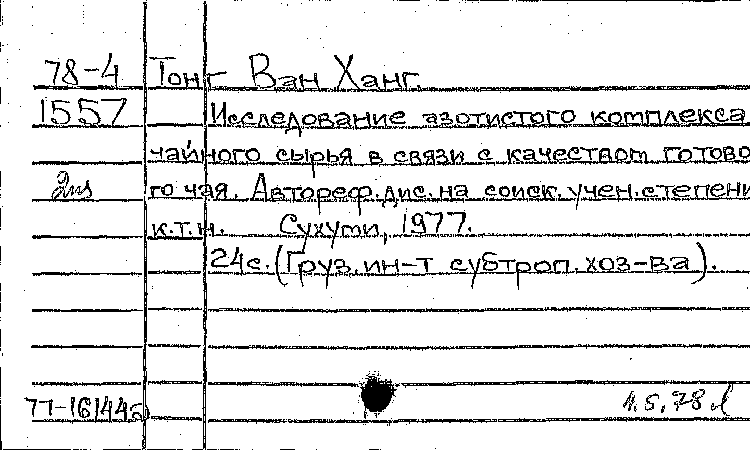 78-4 Тонг Ван Ханг.
1557 Исследование азотистого комплекса
чайного сырья в связи с качеством готово
го чая. Автореф.дис.на соиск.учен.степени
к.т.н. Сухуми, 1977.
24с.(Груз.ин-т субтроп.хоз-ва).
77-16144 1.5.78